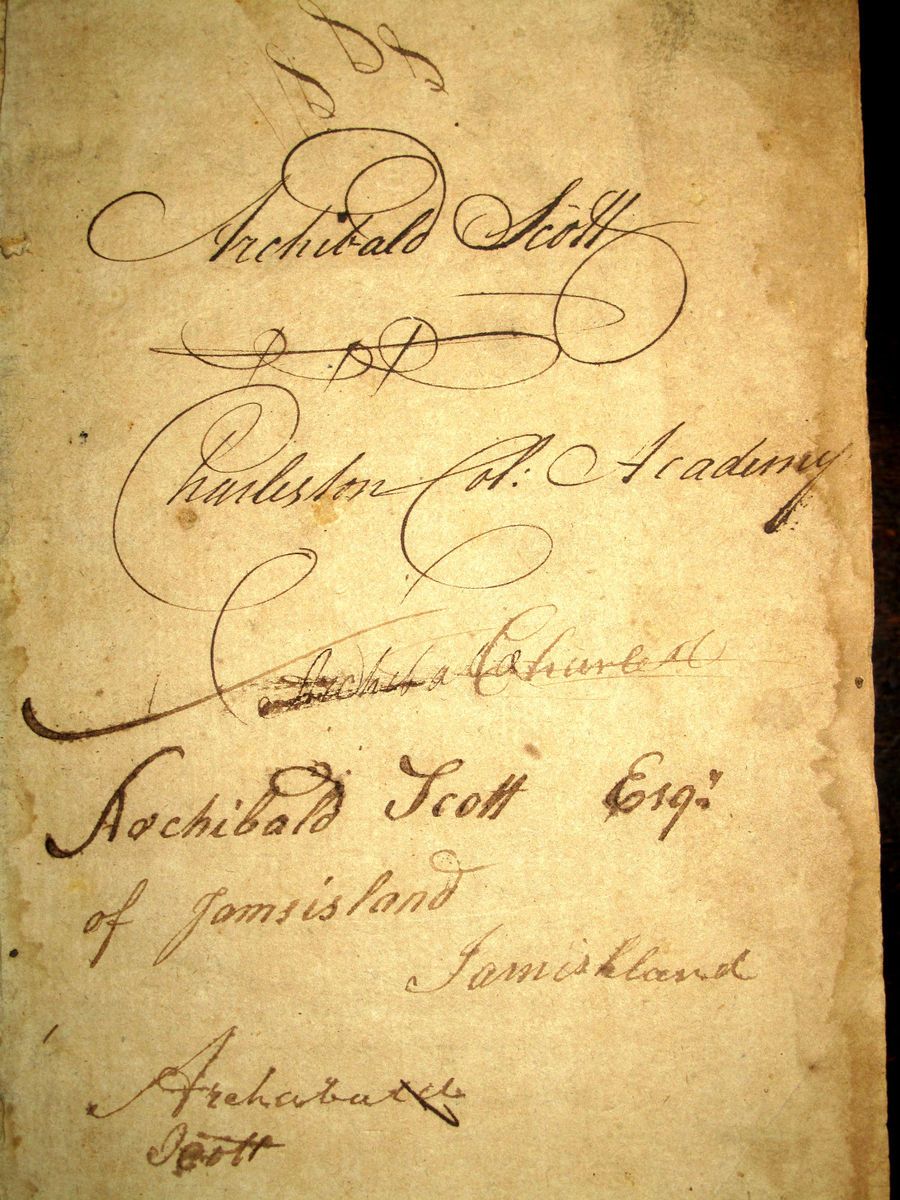 Archibald Scott
Charleston Col: Academy
Archiba Charles
Archibald Scott Esqr
of Jamsisland
Jamiskland
Archabald
Scott